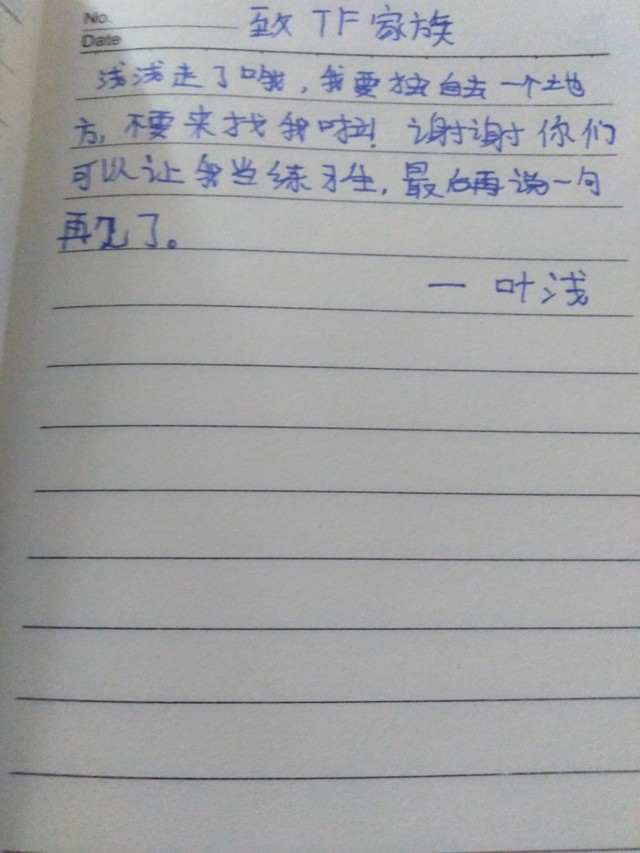 No.
致 TF 家族
Date
浅浅走了哦，我要独自去一个地
方，不要来找我啦！谢谢你们
可以让我当练习生，最后再说一句
再见了。
— 叶浅